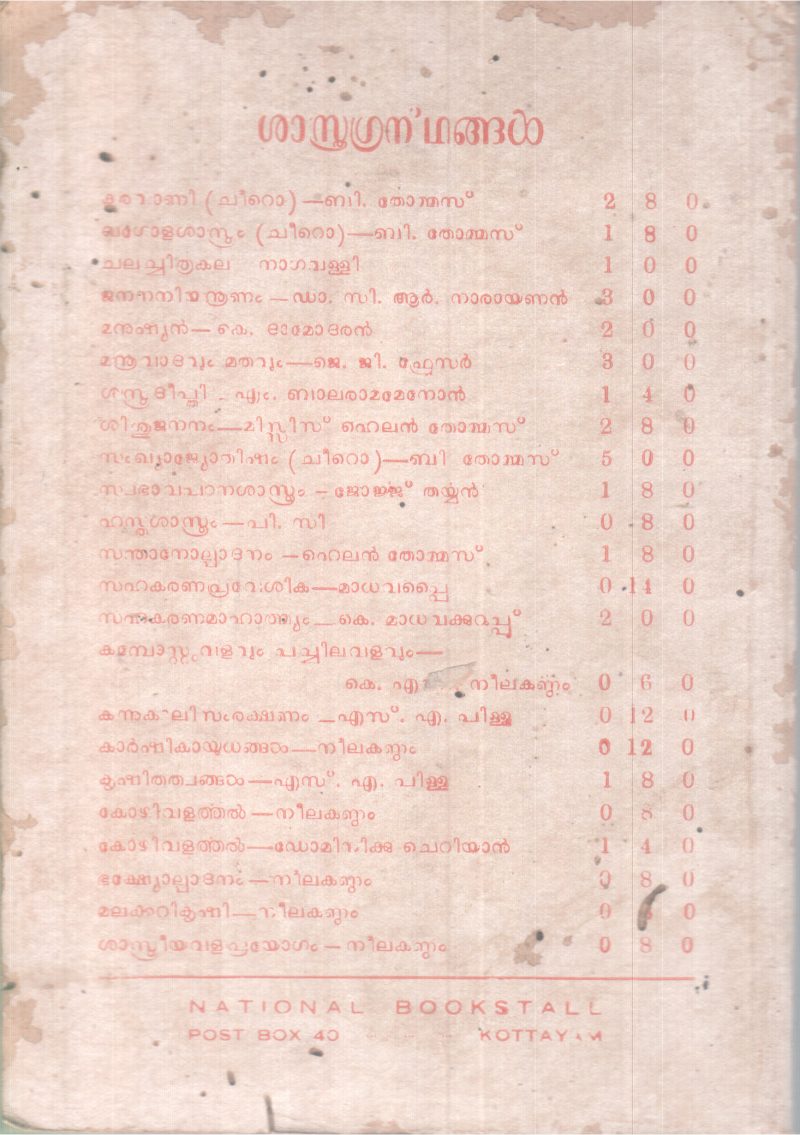 ശാസ്ത്രഗ്രന്ഥങ്ങൾ
(ചീറൊ)—ബി. തോമ്മസ് 2 8 0
ഖഗോളശാസ്ത്രം (ചീറൊ)—ബി. തോമ്മസ് 1 8 0
ചലച്ചിത്രകല നാഗവള്ളി 1 0 0
ജനനനിയന്ത്രണം—ഡാ. സി. ആർ. നാരായണൻ 3 0 0
മനുഷ്യൻ—കെ. ദാമോദരൻ 2 0 0
മന്ത്രവാദവും മതവും—ജെ. ജി. ഫ്രേസർ 3 0 0
എം. ബാലരാമമേനോൻ 1 4 0
ശിശുജനനം—മിസ്സിസ് ഹെലൻ തോമ്മസ് 2 8 0
സംഖ്യാജ്യോതിഷം (ചീറൊ)—ബി തോമ്മസ് 5 0 0
സ്വഭാവപഠനശാസ്ത്രം—ജോജ്ജ് തയ്യൻ 1 8 0
ഹസ്തശാസ്ത്രം—പി. സി 0 8 0
സന്താനോല്പാദനം—ഹെലൻ തോമ്മസ് 1 8 0
സഹകരണപ്രവേശിക—മാധവപ്പൈ 0 14 0
സഹകരണമാഹാത്മ്യം—കെ. മാധവക്കുറുപ്പ് 2 0 0
പച്ചിലവളവും—
കെ. നീലകണ്ഠം 0 6 0
കന്നുകാലിസംരക്ഷണം—എസ്. എ. പിള്ള 0 12 0
കാർഷികായുധങ്ങൾ—നീലകണ്ഠം 0 12 0
കൃഷിതത്വങ്ങൾ—എസ്. എ. പിള്ള 1 8 0
കോഴിവളത്തൽ—നീലകണ്ഠം 0 8 0
കോഴിവളത്തൽ—ഡോമിനിക്കു ചെറിയാൻ 1 4 0
ഭക്ഷ്യോല്പാദനം—നീലകണ്ഠം 0 8 0
മലക്കറികൃഷി—നീലകണ്ഠം 0 0
ശാസ്ത്രീയവളപ്രയോഗം—നീലകണ്ഠം 0 8 0
NATIONAL BOOKSTALL
POST BOX 40 KOTTAYAM